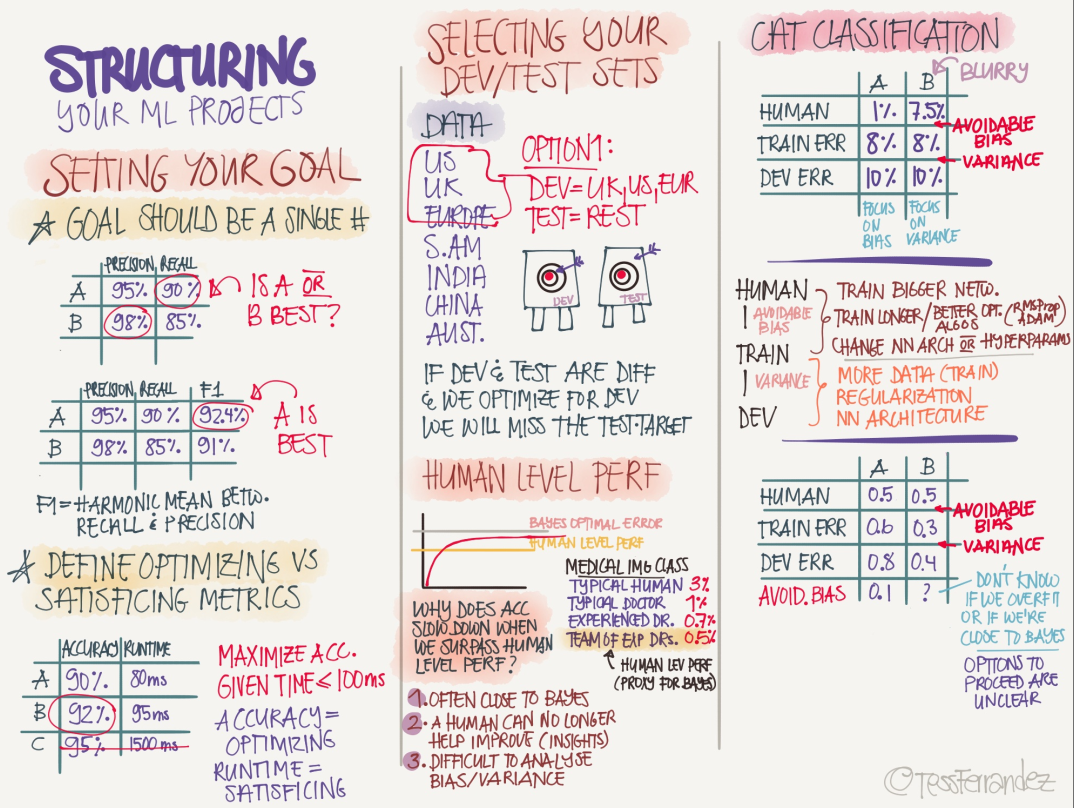 STRUCTURING
YOUR ML PROJECTS
SETTING YOUR GOAL
GOAL SHOULD BE A SINGLE #
PRECISION RECALL
A 95% 90%
B 98% 85%
IS A OR
B BEST?
PRECISION RECALL F1
A 95% 90% 92.4%
B 98% 85% 91%
A IS
BEST
F1 = HARMONIC MEAN BETW.
RECALL & PRECISION
DEFINE OPTIMIZING VS
SATISFICING METRICS
ACCURACY RUNTIME
A 90% 80ms
B 92% 95ms
C 95% 1500ms
MAXIMIZE ACC.
GIVEN TIME ≤ 100ms
ACCURACY =
OPTIMIZING
RUNTIME =
SATISFICING
SELECTING YOUR
DEV/TEST SETS
DATA
US
UK
EUROPE
S.AM
INDIA
CHINA
AUST.
OPTION1:
DEV=UK,US,EUR
TEST=REST
DEV
TEST
IF DEV & TEST ARE DIFF
& WE OPTIMIZE FOR DEV
WE WILL MISS THE TEST-TARGET
HUMAN LEVEL PERF
BAYES OPTIMAL ERROR
HUMAN LEVEL PERF
WHY DOES ACC
SLOW DOWN WHEN
WE SURPASS HUMAN
LEVEL PERF?
MEDICAL IMG CLASS
TYPICAL HUMAN 3%
TYPICAL DOCTOR 1%
EXPERIENCED DR. 0.7%
TEAM OF EXP DRs. 0.5%
HUMAN LEV PERF
(PROXY FOR BAYES)
1. OFTEN CLOSE TO BAYES
2. A HUMAN CAN NO LONGER
HELP IMPROVE (INSIGHTS)
3. DIFFICULT TO ANALYSE
BIAS/VARIANCE
CAT CLASSIFICATION
BLURRY
A B
HUMAN 1% 7.5%
TRAIN ERR 8% 8%
DEV ERR 10% 10%
AVOIDABLE
BIAS
VARIANCE
FOCUS
ON
BIAS
FOCUS
ON
VARIANCE
HUMAN
AVOIDABLE
BIAS
TRAIN
VARIANCE
DEV
TRAIN BIGGER NETW.
TRAIN LONGER/BETTER OPT. ALGOS (RMSProp, ADAM)
CHANGE NN ARCH OR HYPERPARAMS
MORE DATA (TRAIN)
REGULARIZATION
NN ARCHITECTURE
A B
HUMAN 0.5 0.5
TRAIN ERR 0.6 0.3
DEV ERR 0.8 0.4
AVOID. BIAS 0.1 ?
AVOIDABLE
BIAS
VARIANCE
DON'T KNOW
IF WE OVERFIT
OR IF WE'RE
CLOSE TO BAYES
OPTIONS TO
PROCEED ARE
UNCLEAR
©TessFerrandez